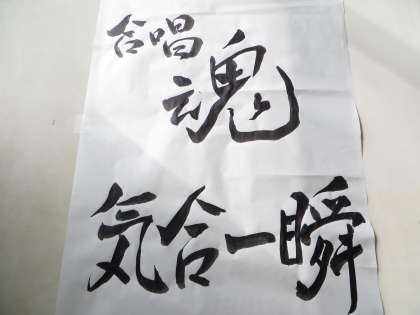 合唱
魂
気合一瞬